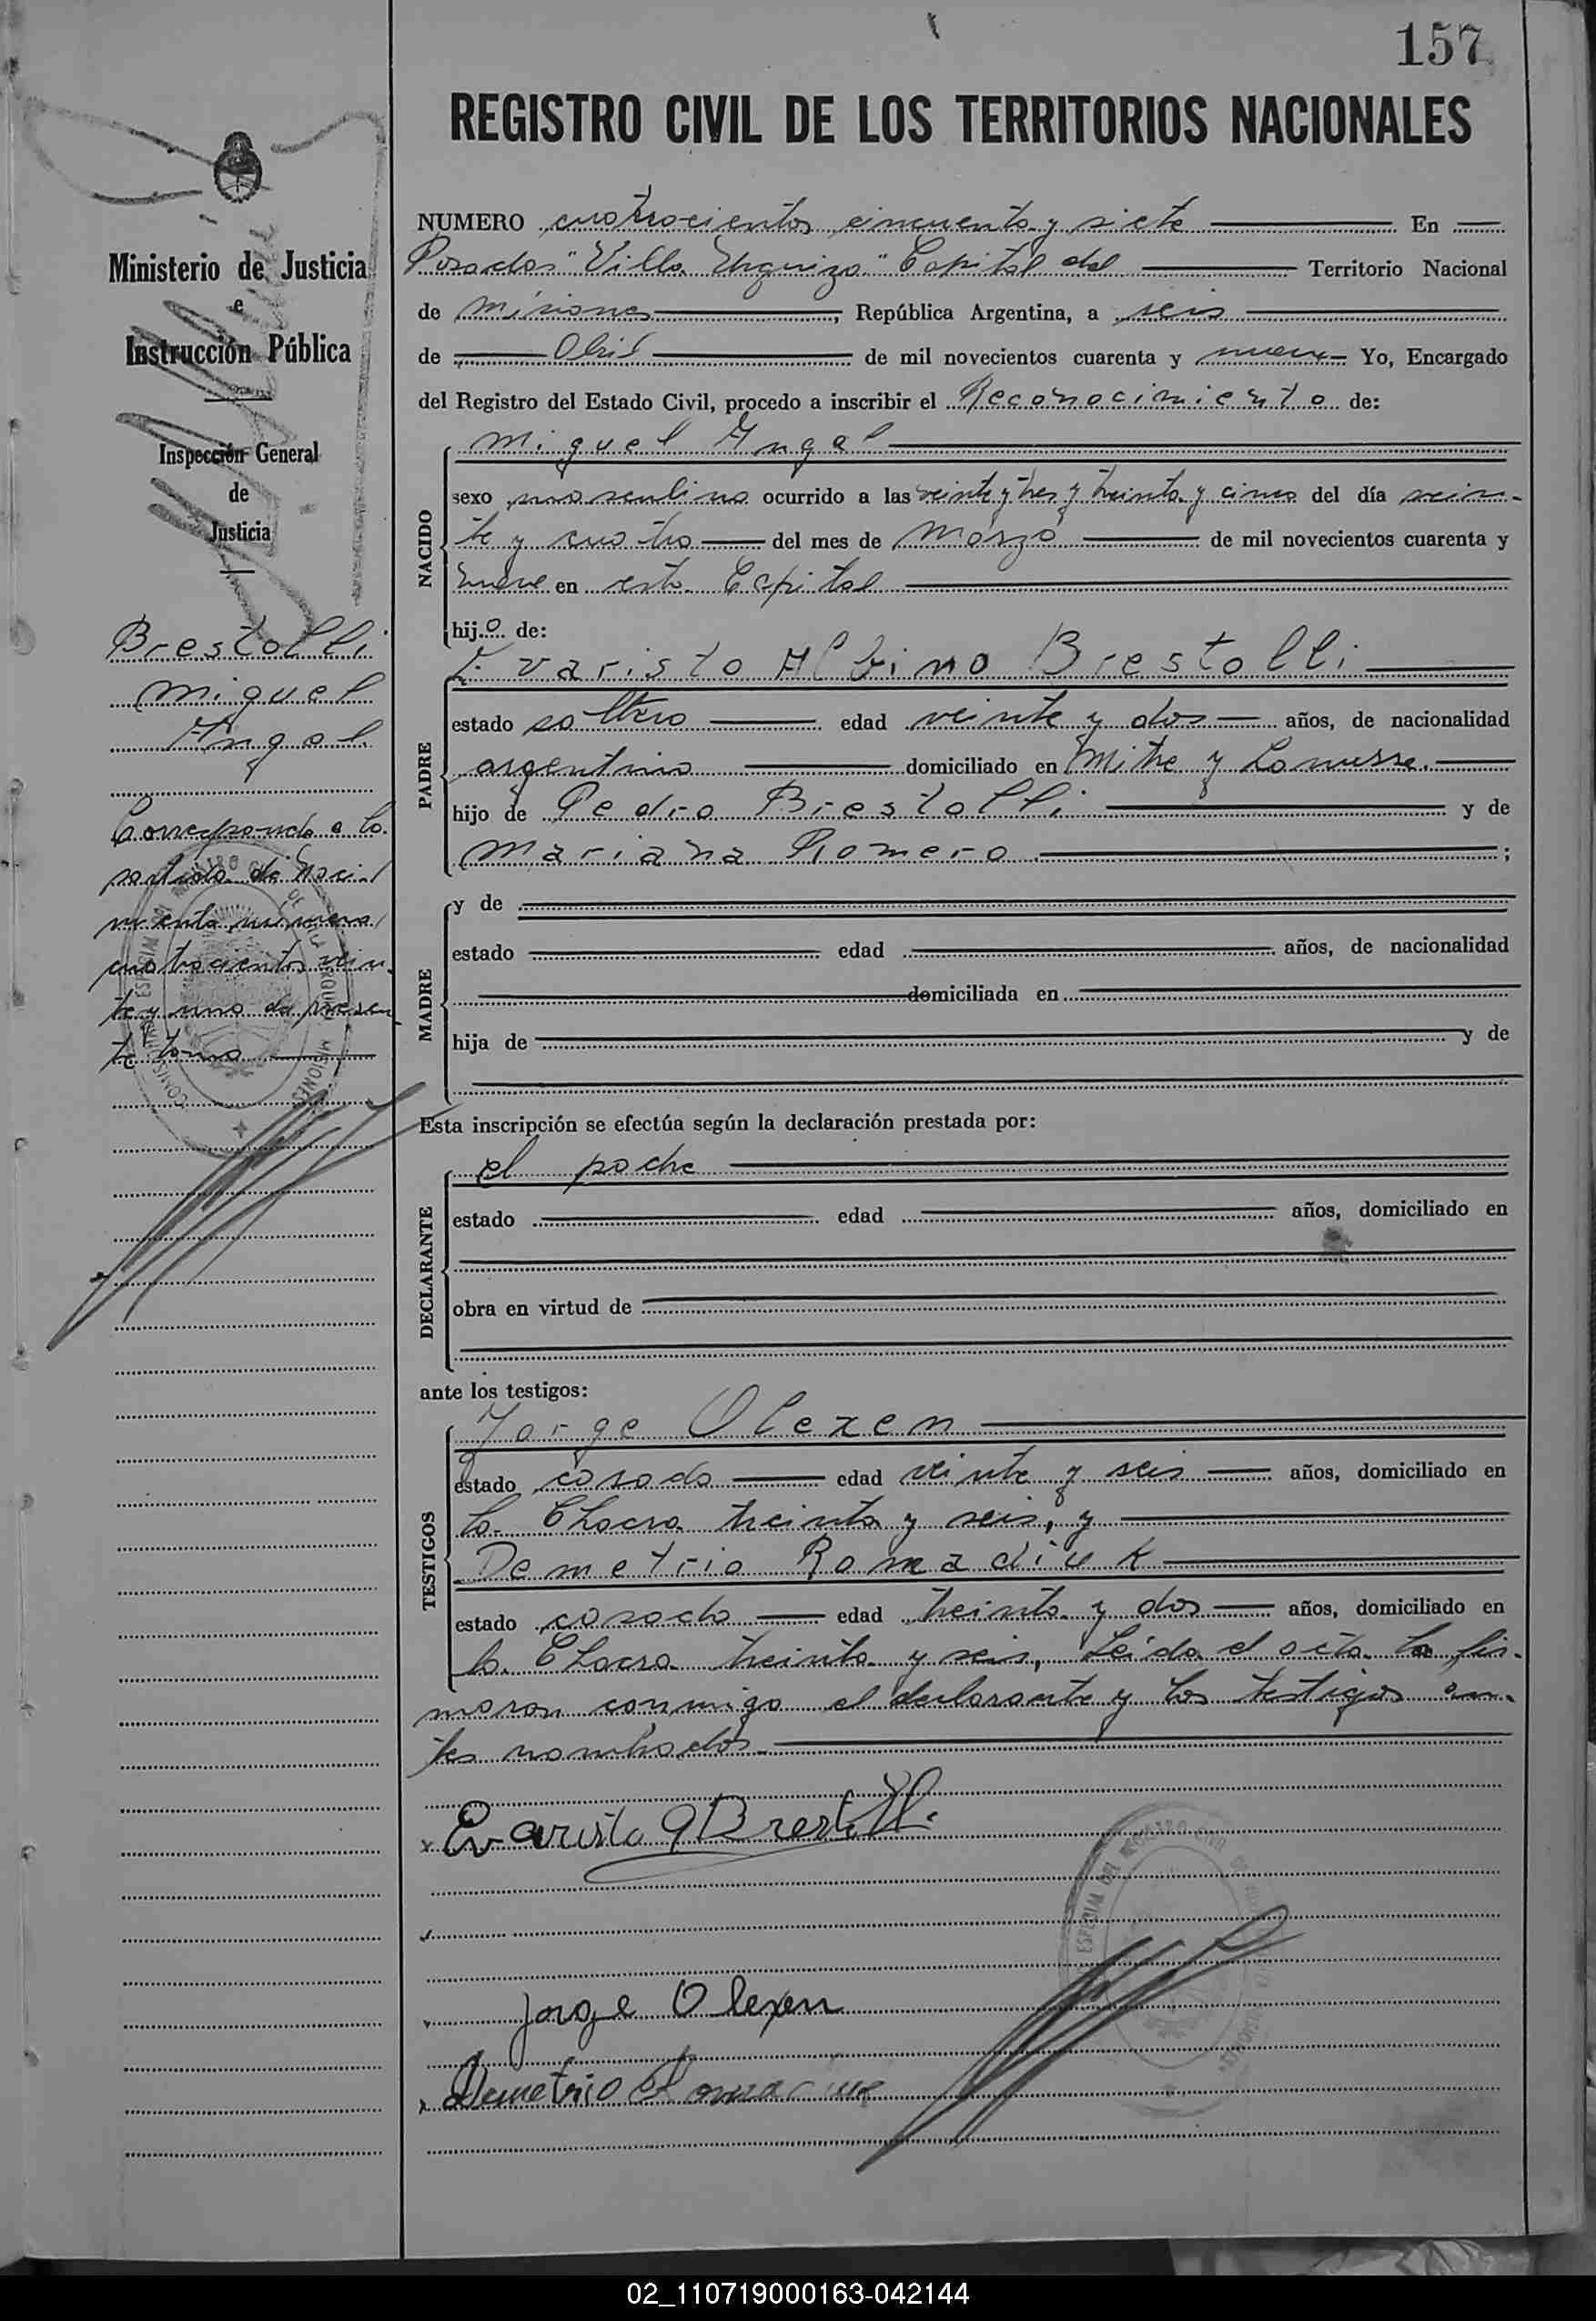 157
REGISTRO CIVIL DE LOS TERRITORIOS NACIONALES
Ministerio de Justicia
e
Instrucción Pública
Inspección General
de
Justicia
Brestolli
Miguel
Angel
Corresponde a la
partida de Naci-
miento número
cuatrocientos vein-
te y uno del presen
te tomo
NUMERO cuatrocientos cincuenta y siete En
Posadas "Villa Urquiza" Capital del Territorio Nacional
de Misiones, República Argentina, a seis
de Abril de mil novecientos cuarenta y nueve Yo, Encargado
del Registro del Estado Civil, procedo a inscribir el Reconocimiento de:
NACIDO
Miguel Angel
sexo masculino ocurrido a las veinte y tres y treinta y cinco del día vein-
te y cuatro del mes de Marzo de mil novecientos cuarenta y
nueve en esta Capital
hijo de:
PADRE
Evaristo Albino Brestolli
estado soltero edad veinte y dos años, de nacionalidad
argentino domiciliado en Mitre y Lanusse.
hijo de Pedro Brestolli y de
Mariana Romero ;
MADRE
y de
estado edad años, de nacionalidad
domiciliada en
hija de y de
Esta inscripción se efectúa según la declaración prestada por:
DECLARANTE
el padre
estado edad años, domiciliado en
obra en virtud de
ante los testigos:
TESTIGOS
Jorge Olexen
estado casado edad veinte y seis años, domiciliado en
la Chacra treinta y seis, y
Demetrio Romadiuk
estado casado edad treinta y dos años, domiciliado en
la Chacra treinta y seis, Leída el acta la fir-
maron conmigo el declarante y los testigos an-
tes nombrados.
Evaristo A Brestolli
Jorge Olexen
Demetrio
02_110719000163-042144